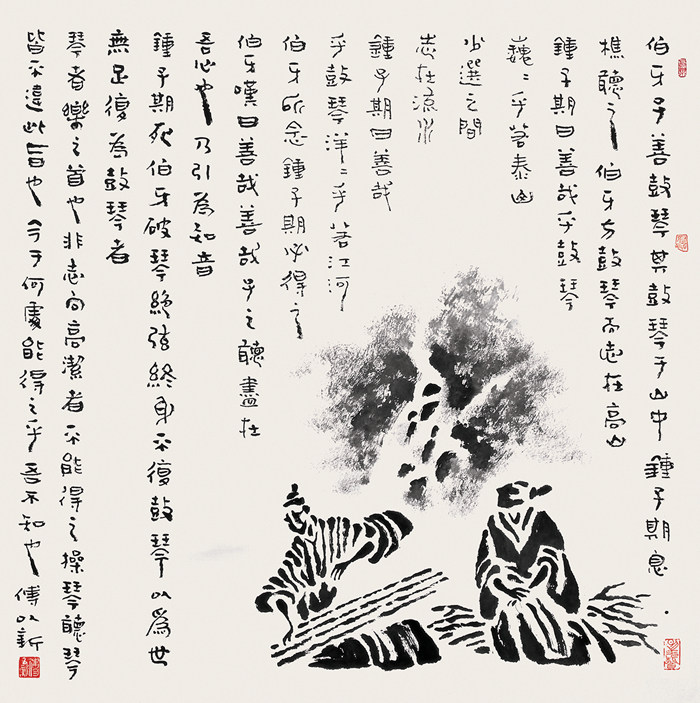 伯牙子善鼓琴其鼓琴于山中鍾子期息
樵聽之伯牙方鼓琴而志在高山
鍾子期曰善哉乎鼓琴
巍二乎若泰山
少選之間
志在流水
鍾子期曰善哉
乎鼓琴洋二乎若江河
伯牙所念鍾子期必得之
伯牙嘆曰善哉善哉子之聽盡在
吾心也乃引為知音
鍾子期死伯牙破琴絕弦終身不復鼓琴以為世
無足復為鼓琴者
琴者樂之首也非志向高潔者不能得之操琴聽琴
皆不違此旨也今于何處能得之乎吾不知也傅以新